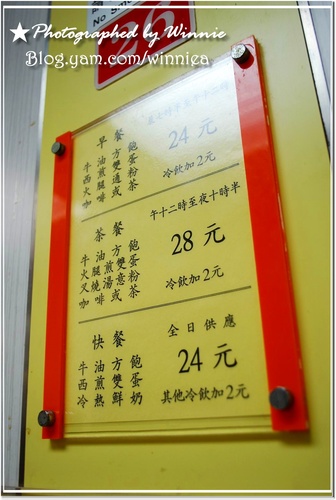 ★Photographed by Winnie
Blog.yam.com/winniea
No Smo
26
早餐
牛油方飽
西煎雙蛋
火腿通粉
咖啡或茶
24元
冷飲加2元
茶餐
牛油方飽
火腿煎雙蛋
叉燒湯意粉
咖啡或茶
午十二時至夜十時半
28元
冷飲加2元
快餐
牛油方飽
西煎雙蛋
冷熱鮮奶
全日供應
24元
其他冷飲加2元